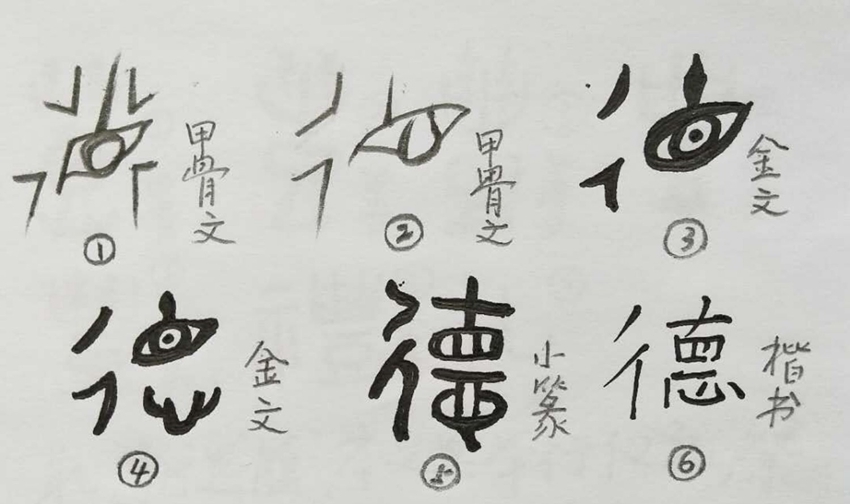 甲骨文
①
甲骨文
②
金文
③
德
金文
④
德
小篆
⑤
德
楷书
⑥